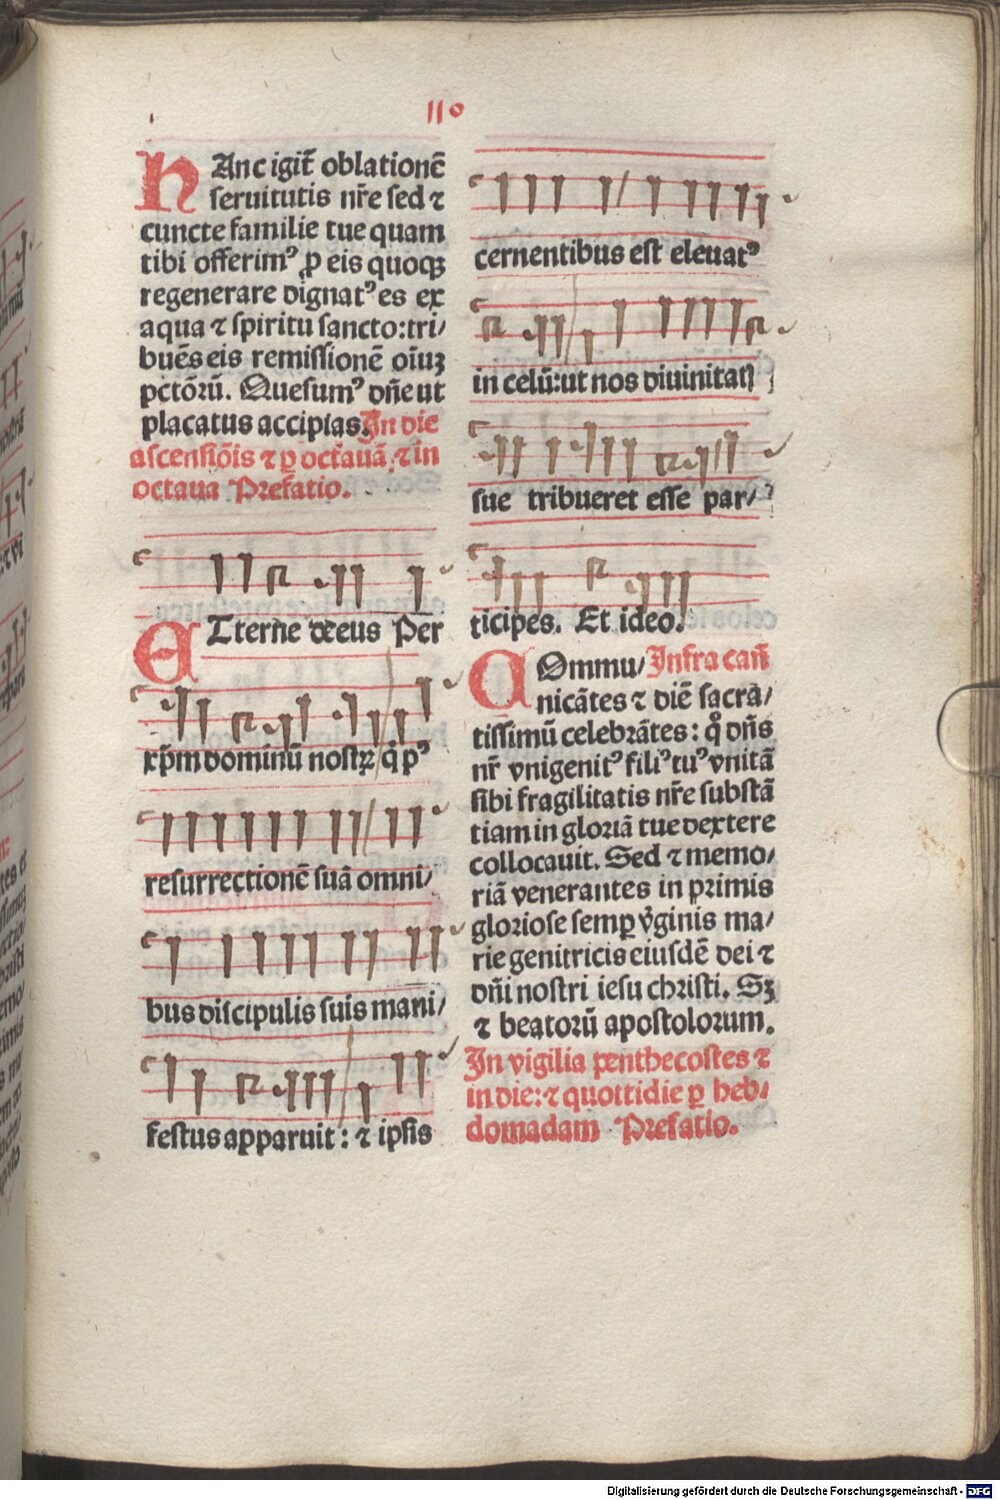 110
HAnc igit̄ oblationē
seruitutis nr̄e sed ⁊
cuncte familie tue quam
tibi offerimꝰ ꝓ eis quoqꝫ
regenerare dignatꝰ es ex
aqua ⁊ spiritu sancto: tri/
buēs eis remissionē oīuꝫ
pctōrū. Quesumꝰ dn̄e ut
placatus accipias. In die
ascensiōis ⁊ ꝑ octauā ⁊ in
octaua Prefatio.
ETterne deus Per
xp̄m dominū nostrꝝ q̇ pꝰ
resurrectionē suā omni/
bus discipulis suis mani/
festus apparuit: ⁊ ipsis
cernentibus est eleuatꝰ
in celū: ut nos diuinitatꝭ
sue tribueret esse par/
ticipes. Et ideo.
COmmu/ Infra cań
nicātes ⁊ diē sacra/
tissimū celebrātes: q̊ dn̄s
nr̄ vnigenitꝰ filiꝰ tuꝰ vnitā
sibi fragilitatis nr̄e substā
tiam in gloriā tue dextere
collocauit. Sed ⁊ memo/
riā venerantes in primis
gloriose semꝑ v̇ginis ma/
rie genitricis eiusdē dei ⁊
dn̄i nostri iesu christi. Sꝫ
⁊ beatorū apostolorum.
In vigilia penthecostes ⁊
in die: ⁊ quottidie ꝑ heb/
domadam Prefatio.
Digitalisierung gefördert durch die Deutsche Forschungsgemeinschaft - DFG